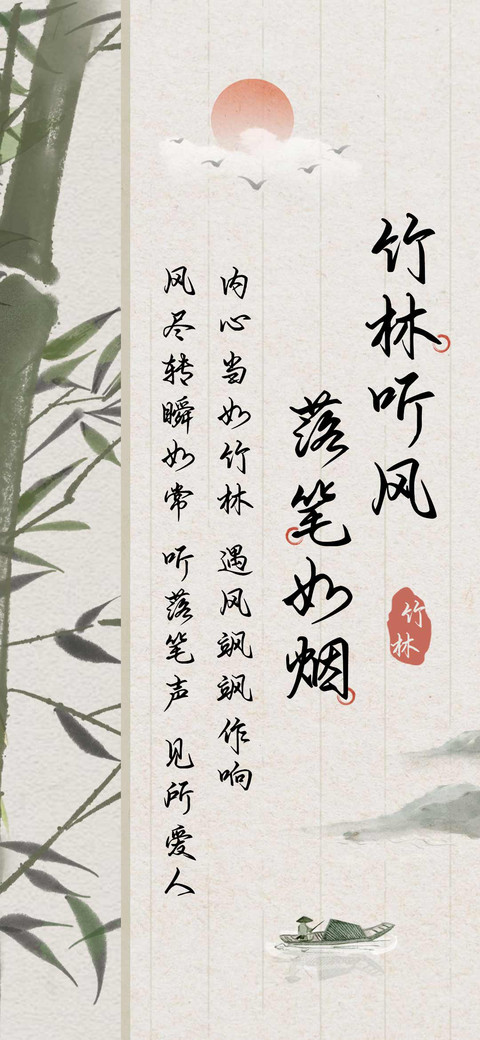 竹林听风
落笔如烟
竹林
内心当如竹林 遇风飒飒作响
风尽转瞬如常 听落笔声 见所爱人